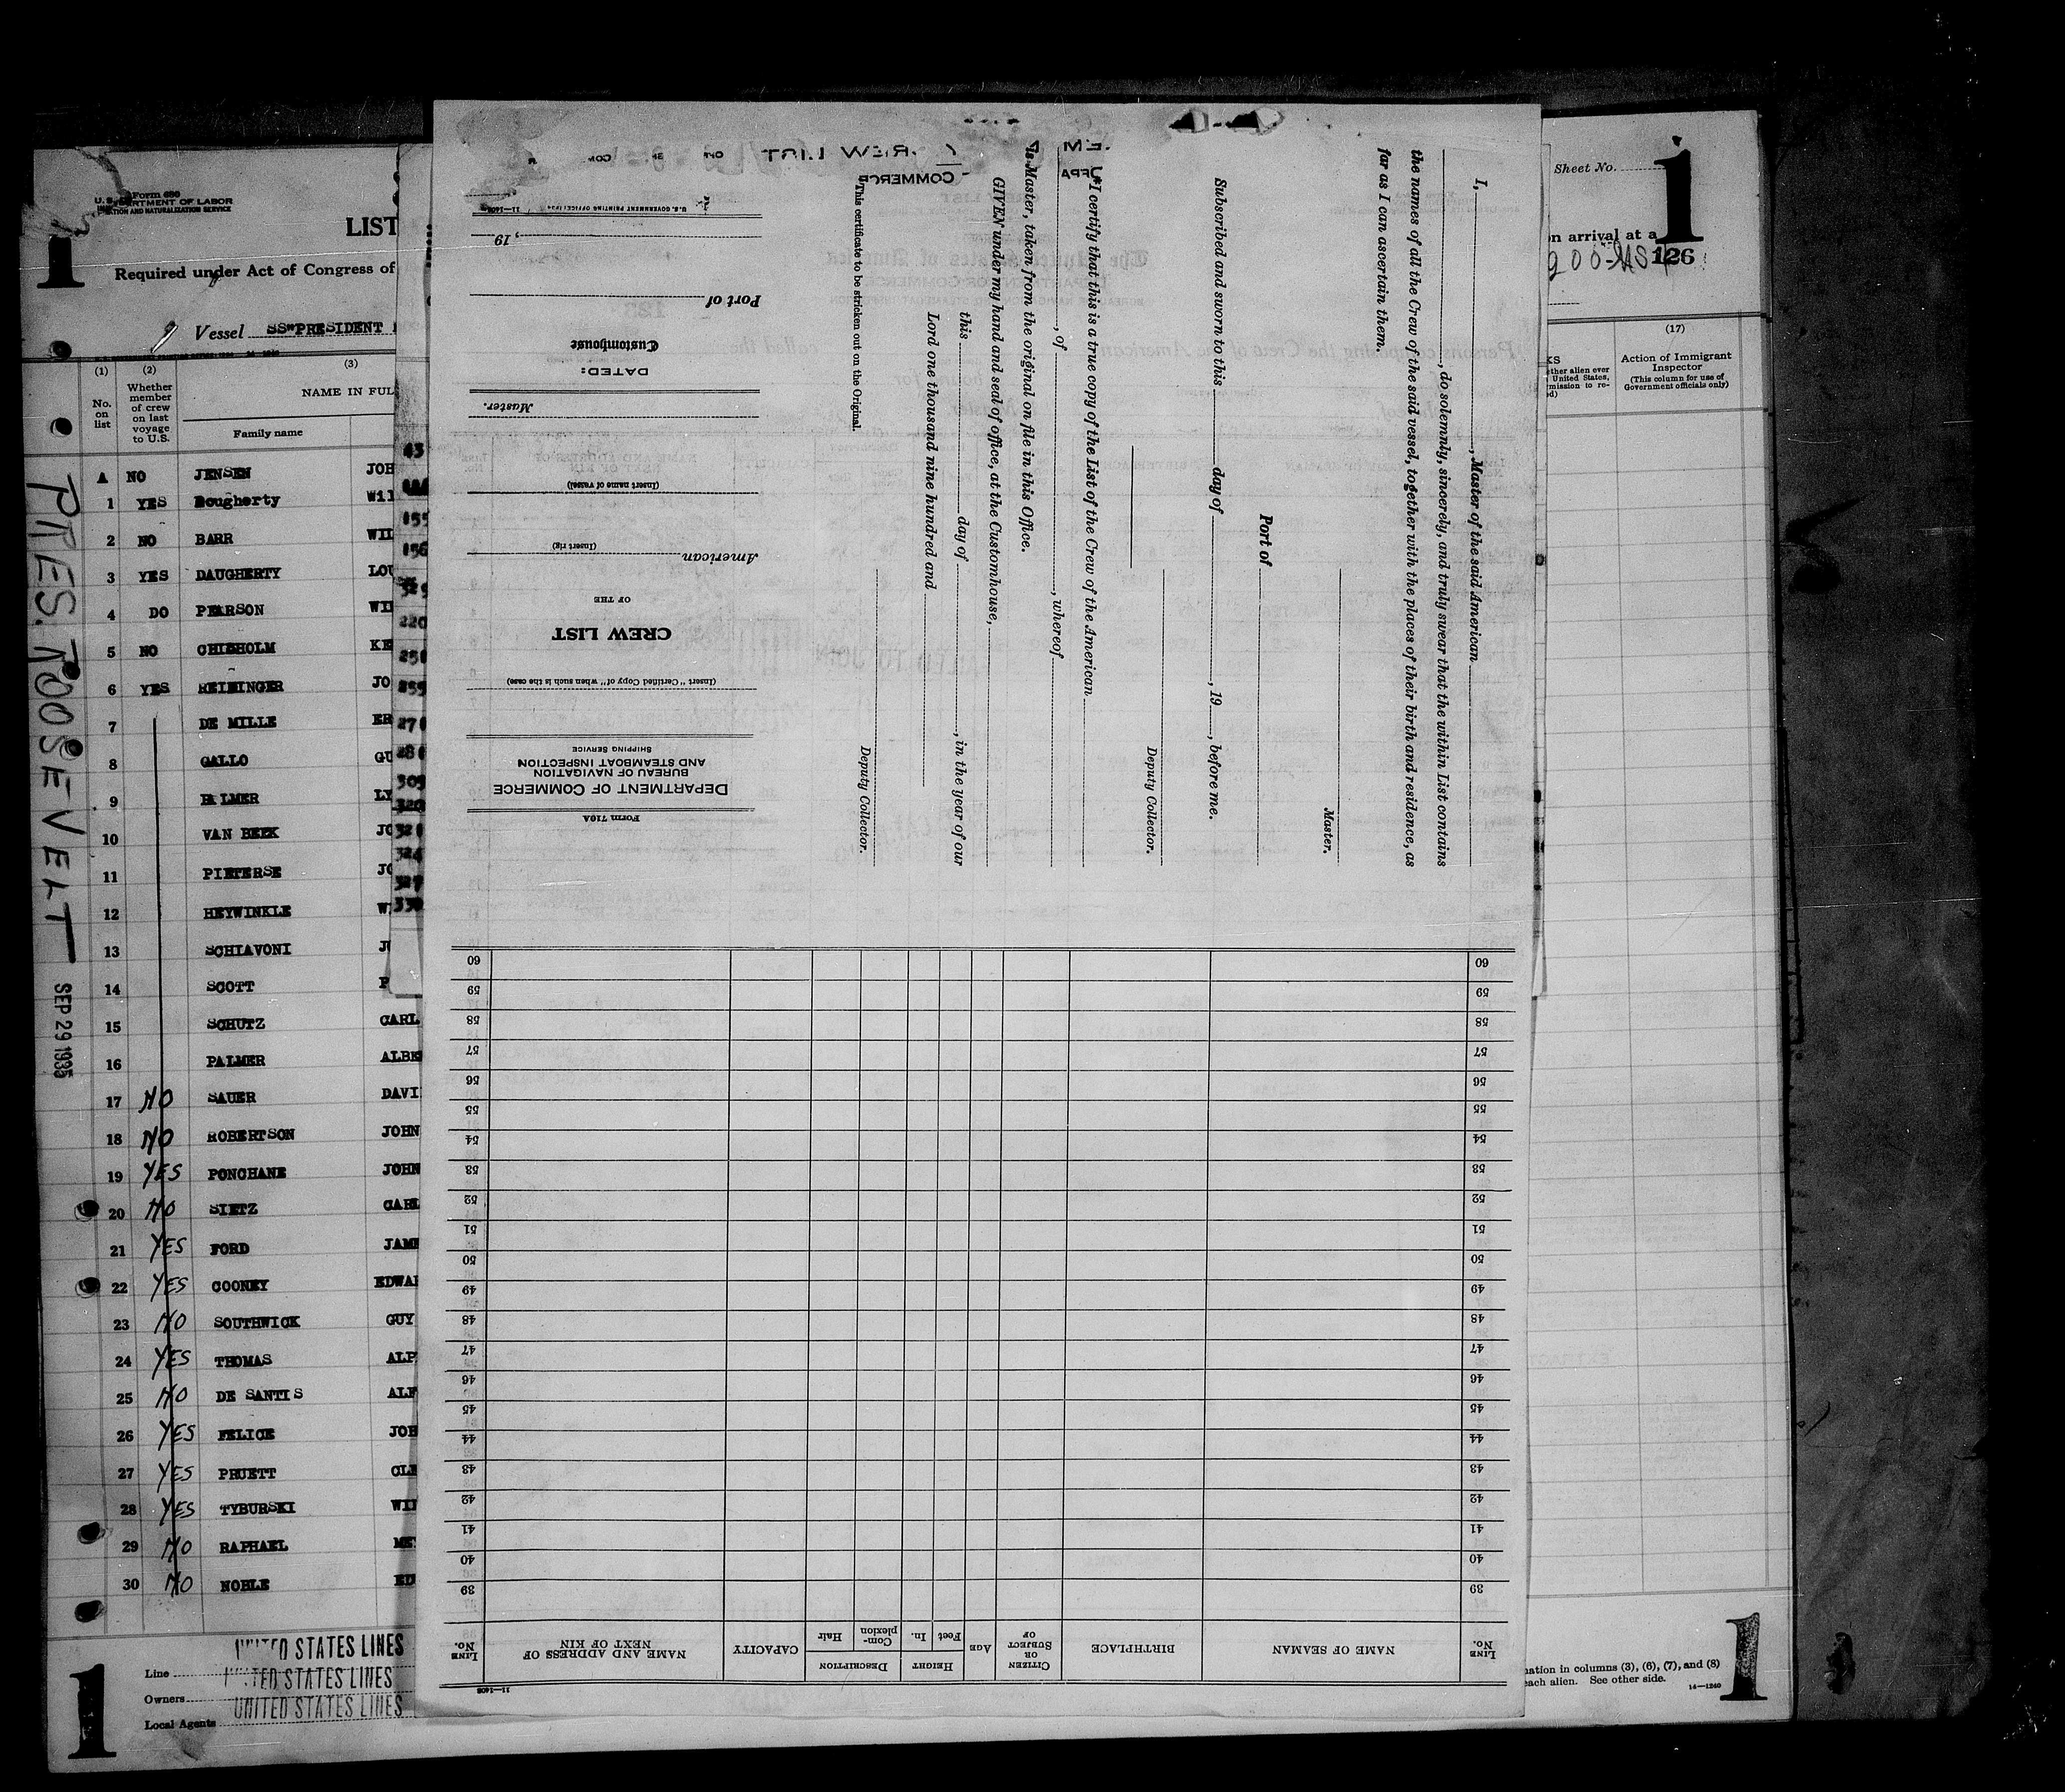 Form 680
U. S. DEPARTMENT OF LABOR
IMMIGRATION AND NATURALIZATION SERVICE
1
LIST
Required under Act of Congress of
Vessel SS"PRESIDENT
(1) (2) (3)
No. on list
Whether member of crew on last voyage to U.S.
NAME IN FUL
Family name
A NO JENSEN JOH
1 YES Dougherty Wil
2 NO BARR WIL
3 YES DAUGHERTY LOU
4 DO PEARSON WI
5 NO CHISHOLM KE
6 YES REININGER JO
7 DE MILLE ER
8 GALLO GU
9 PALMER LY
10 VAN BEEK JO
11 PIETERSE JO
12 HEYWINKLE W
13 SCHIAVONI JO
14 SCOTT P
15 SCHUTZ CARL
16 PALMER ALBE
17 NO SAUER DAVI
18 NO ROBERTSON JOHN
19 YES PONCHANE JOHN
20 NO SIETZ CARL
21 YES FORD JAME
22 YES COONEY EDWA
23 NO SOUTHWICK GUY
24 YES THOMAS ALP
25 NO DE SANTIS ALF
26 YES FELICE JOH
27 YES PRUETT CLE
28 YES TYBURSKI WIL
29 NO RAPHAEL ME
30 NO NOBLE ED
PRES. ROOSEVELT—
SEP 29 1935
Line UNITED STATES LINES
Owners UNITED STATES LINES
Local Agents UNITED STATES LINES
1
155
156
220
327
330
I, , Master of the said American
, do solemnly, sincerely, and truly swear that the within List contains
the names of all the Crew of the said vessel, together with the places of their birth and residence, as
far as I can ascertain them.
Master.
Port of
Subscribed and sworn to this day of , 19 , before me.
Deputy Collector.
*I certify that this is a true copy of the List of the Crew of the American
, of , whereof
is Master, taken from the original on file in this Office.
GIVEN under my hand and seal of office, at the Customhouse,
this day of , in the year of our
Lord one thousand nine hundred and
Deputy Collector.
*This certificate to be stricken out on the Original.
CREW LIST
COMMERCE
Form 710A
DEPARTMENT OF COMMERCE
BUREAU OF NAVIGATION
AND STEAMBOAT INSPECTION
SHIPPING SERVICE
(Insert "Certified Copy of" when such is the case)
CREW LIST
OF THE
American
(Insert rig)
(Insert name of vessel)
Master.
DATED:
Customhouse
Port of
, 19
U. S. GOVERNMENT PRINTING OFFICE: 1934 11—1408
11—1408
LINE No.
NAME OF SEAMAN
BIRTHPLACE
CITIZEN OR SUBJECT OF
AGE
HEIGHT
Feet In.
DESCRIPTION
Complexion Hair
CAPACITY
NAME AND ADDRESS OF NEXT OF KIN
LINE No.
39 39
40 40
41 41
42 42
43 43
44 44
45 45
46 46
47 47
48 48
49 49
50 50
51 51
52 52
53 53
54 54
55 55
56 56
57 57
58 58
59 59
60 60
Sheet No. 1
on arrival at a
126
(17)
KS
ether alien ever
United States,
mission to re-
Action of Immigrant Inspector
(This column for use of Government officials only)
mation in columns (3), (6), (7), and (8)
each alien. See other side.
14—1240
1